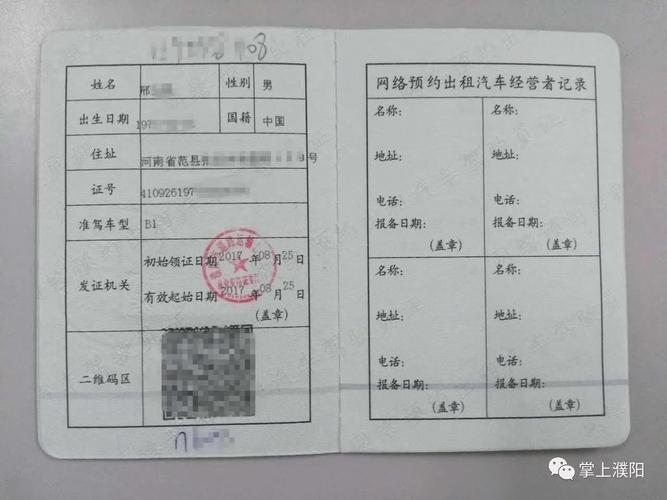 08
姓名 邢 性别 男
出生日期 197 国籍 中国
住址 河南省范县 号
证号 410926197
准驾车型 B1
发证机关
初始领证日期 2017 年 08 月 25 日
有效起始日期 2017 年 08 月 25 日
(盖章)
二维码区
网络预约出租汽车经营者记录
名称: 名称:
地址: 地址:
电话: 电话:
报备日期: 报备日期:
(盖章) (盖章)
名称: 名称:
地址: 地址:
电话: 电话:
报备日期: 报备日期:
(盖章) (盖章)
掌上濮阳